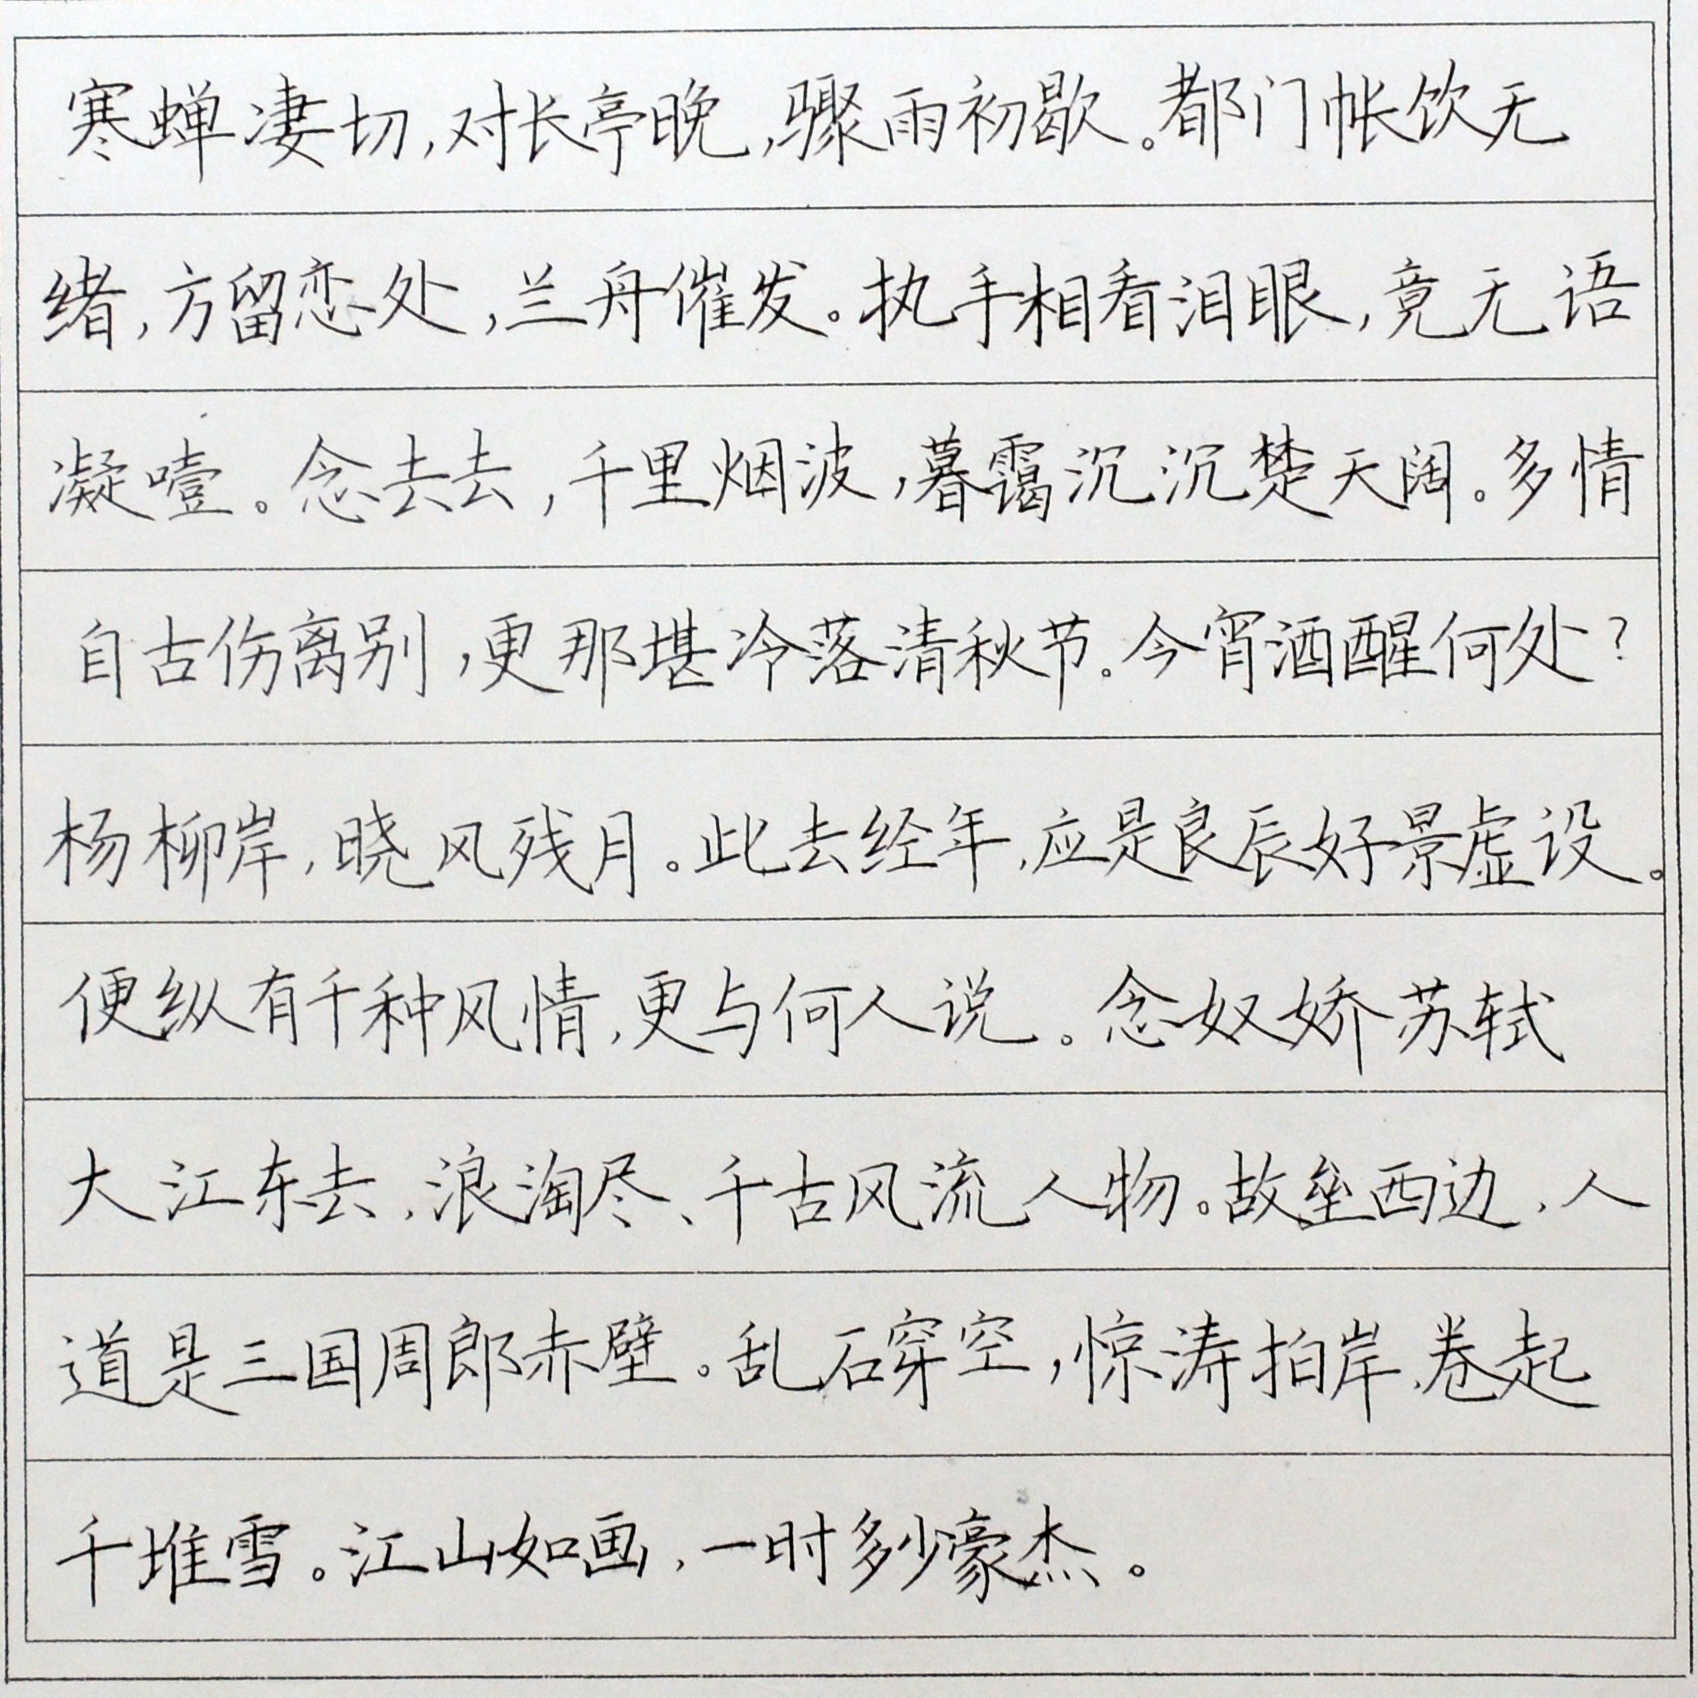 寒蝉凄切,对长亭晚,骤雨初歇。都门帐饮无
绪,方留恋处,兰舟催发。执手相看泪眼,竟无语
凝噎。念去去,千里烟波,暮霭沉沉楚天阔。多情
自古伤离别,更那堪冷落清秋节。今宵酒醒何处?
杨柳岸,晓风残月。此去经年,应是良辰好景虚设。
便纵有千种风情,更与何人说。念奴娇苏轼
大江东去,浪淘尽、千古风流人物。故垒西边,人
道是三国周郎赤壁。乱石穿空,惊涛拍岸,卷起
千堆雪。江山如画,一时多少豪杰。